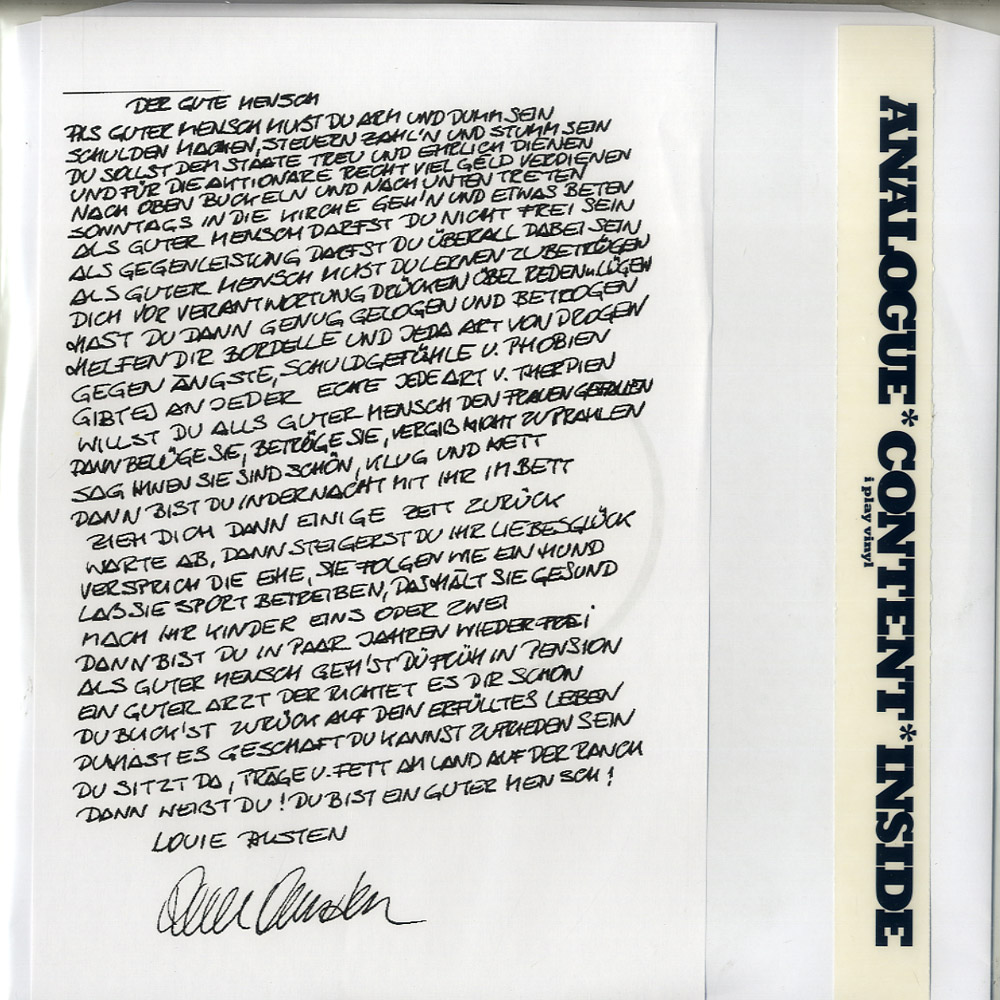 DER GUTE MENSCH
ALS GUTER MENSCH MUßT DU ARM UND DUMM SEIN
SCHULDEN MACHEN, STEUERN ZAHL'N UND STUMM SEIN
DU SOLLST DEM STAATE TREU UND EHRLICH DIENEN
UND FÜR DIE AKTIONÄRE RECHT VIEL GELD VERDIENEN
NACH OBEN BUCKELN UND NACH UNTEN TRETEN
SONNTAGS IN DIE KIRCHE GEH'N UND ETWAS BETEN
ALS GUTER MENSCH DARFST DU NICHT FREI SEIN
ALS GEGENLEISTUNG DARFST DU ÜBERALL DABEI SEIN
ALS GUTER MENSCH MUßT DU LERNEN ZU BETRÜGEN
DICH VOR VERANTWORTUNG DRÜCKEN ÜBEL REDEN u. LÜGEN
HAST DU DANN GENUG GELOGEN UND BETROGEN
HELFEN DIR BORDELLE UND JEDA ART VON DROGEN
GEGEN ÄNGSTE, SCHULDGEFÜHLE U. PHOBIEN
GIBT ES AN JEDER ECKE JEDE ART V. THERPIEN
WILLST DU ALLS GUTER MENSCH DEN FRAUEN GEFALLEN
DANN BELÜGE SIE, BETRÜGE SIE, VERGIß NICHT ZU PRAHLEN
SAG IHNEN SIE SIND SCHÖN, KLUG UND NETT
DANN BIST DU IN DER NACHT MIT IHR IM BETT
ZIEH DICH DANN EINIGE ZEIT ZURÜCK
WARTE AB, DANN STEIGERST DU IHR LIEBESGLÜCK
VERSPRICH DIE EHE, SIE FOLGEN WIE EIN HUND
LAß SIE SPORT BETREIBEN, DAS HÄLT SIE GESUND
MACH IHR KINDER EINS ODER ZWEI
DANN BIST DU IN PAAR JAHREN WIEDER FREI
ALS GUTER MENSCH GEH'ST DU FRÜH IN PENSION
EIN GUTER ARZT DER RICHTET ES DIR SCHON
DU BLICK'ST ZURÜCK AUF DEIN ERFÜLLTES LEBEN
DU HAST ES GESCHAFT DU KANNST ZUFRIEDEN SEIN
DU SITZT DA, TRÄGE U. FETT AM LAND AUF DER RANCH
DANN WEIßT DU! DU BIST EIN GUTER MENSCH!
LOUIE AUSTEN
Louie Austen
ANALOGUE* CONTENT* INSIDE
i play vinyl